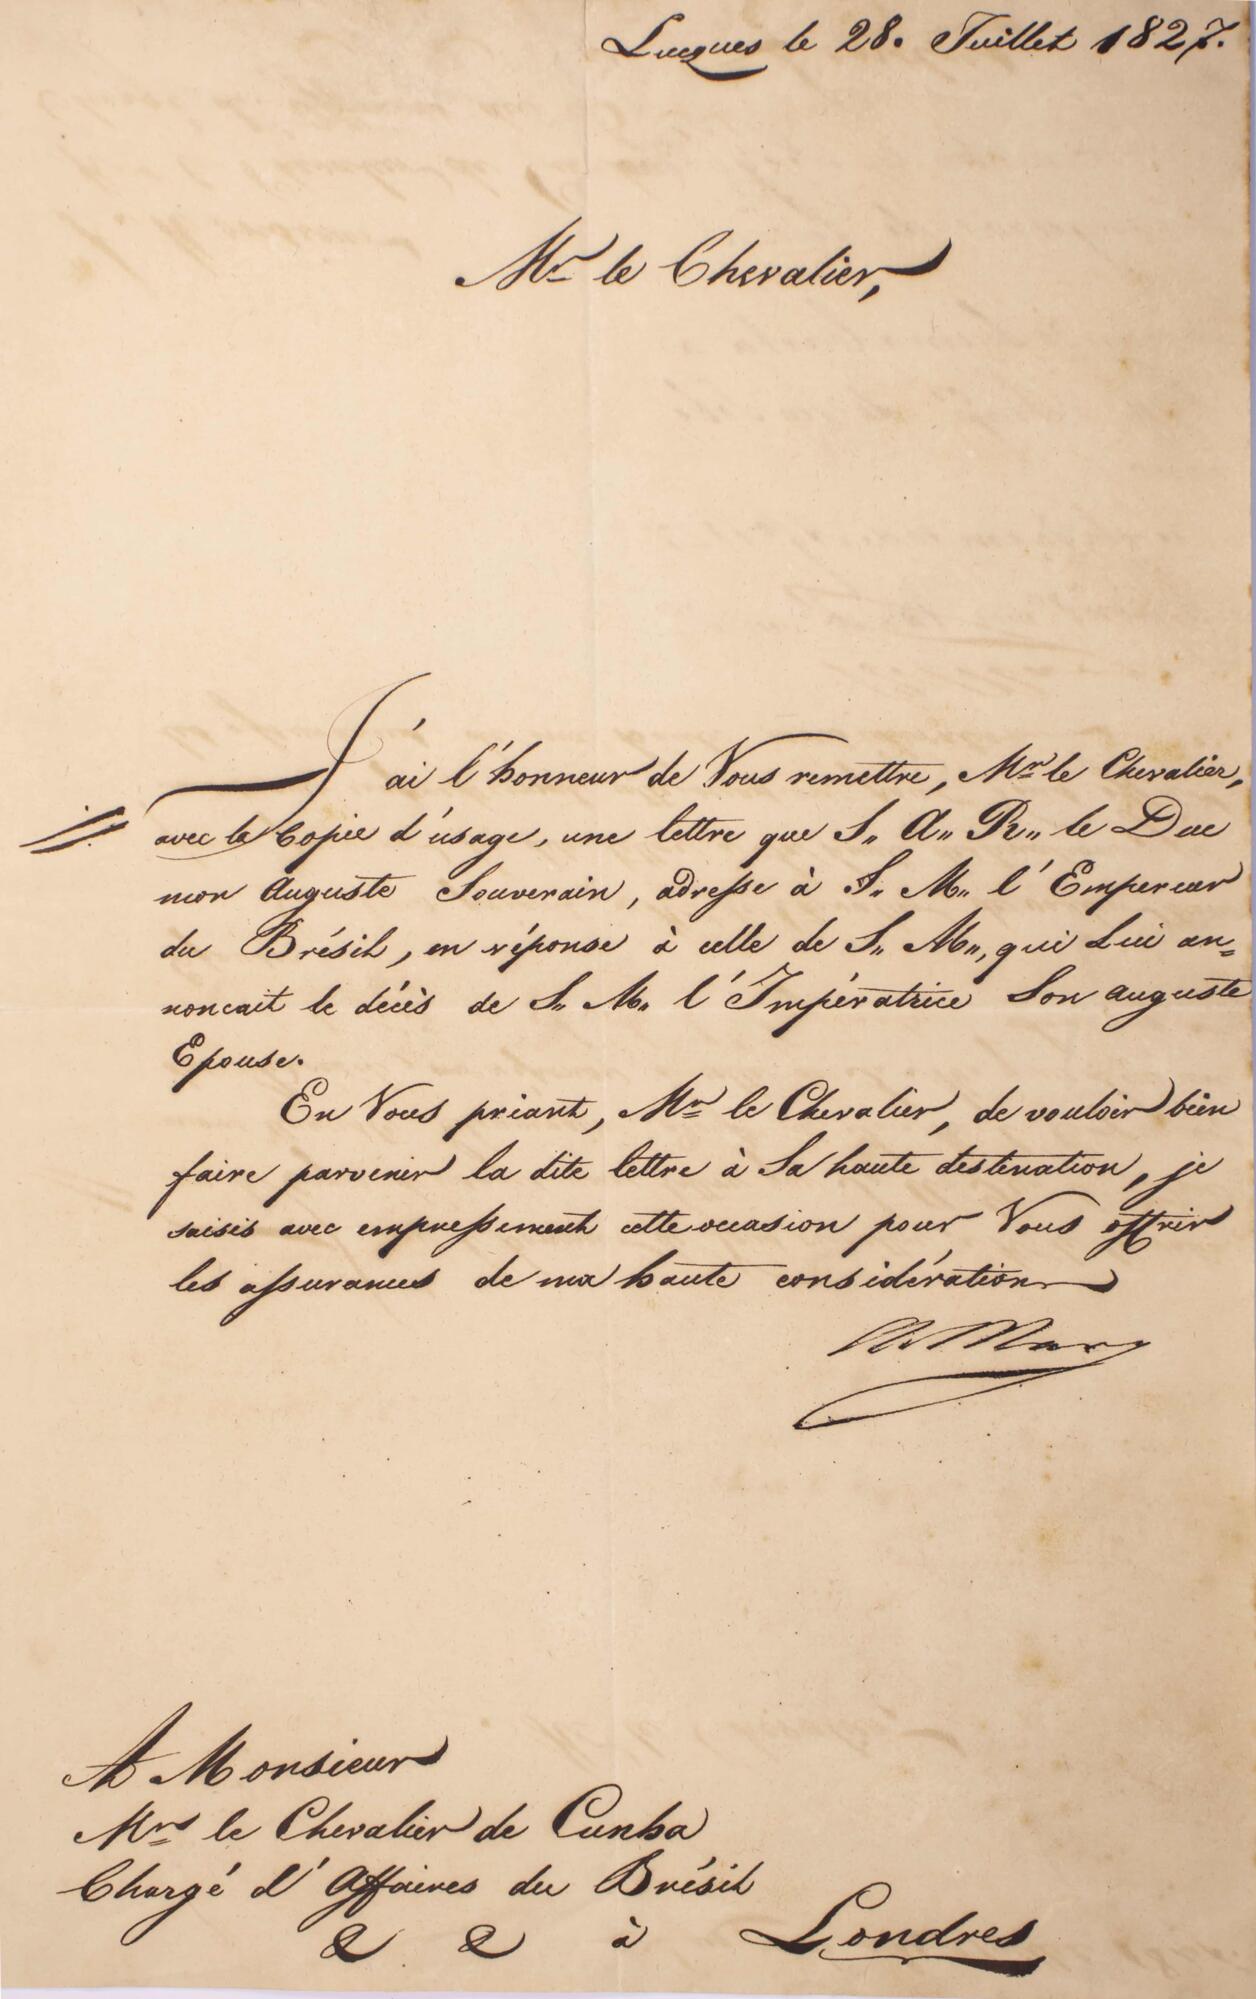 Lucques le 28. Juillet 1827.
Mr le Chevalier,
J'ai l'honneur de Vous remettre, Mr le Chevalier,
avec la Copie d'usage, une lettre que S„ A„ R„ le Duc
mon Auguste Souverain, adresse à S„ M„ l'Empereur
du Brésil, en réponse à celle de S„ M„, qui Lui an=
noncait le décès de S„ M„ l'Impératrice Son auguste
Epouse.
En Vous priant, Mr le Chevalier, de vouloir bien
faire parvenir la dite lettre à Sa haute destination, je
saisis avec empressement cette occasion pour Vous offrir
les assurances de ma haute considération
A Monsieur
Mr le Chevalier de Cunha
Chargé d'Affaires du Brésil
& & à Londres